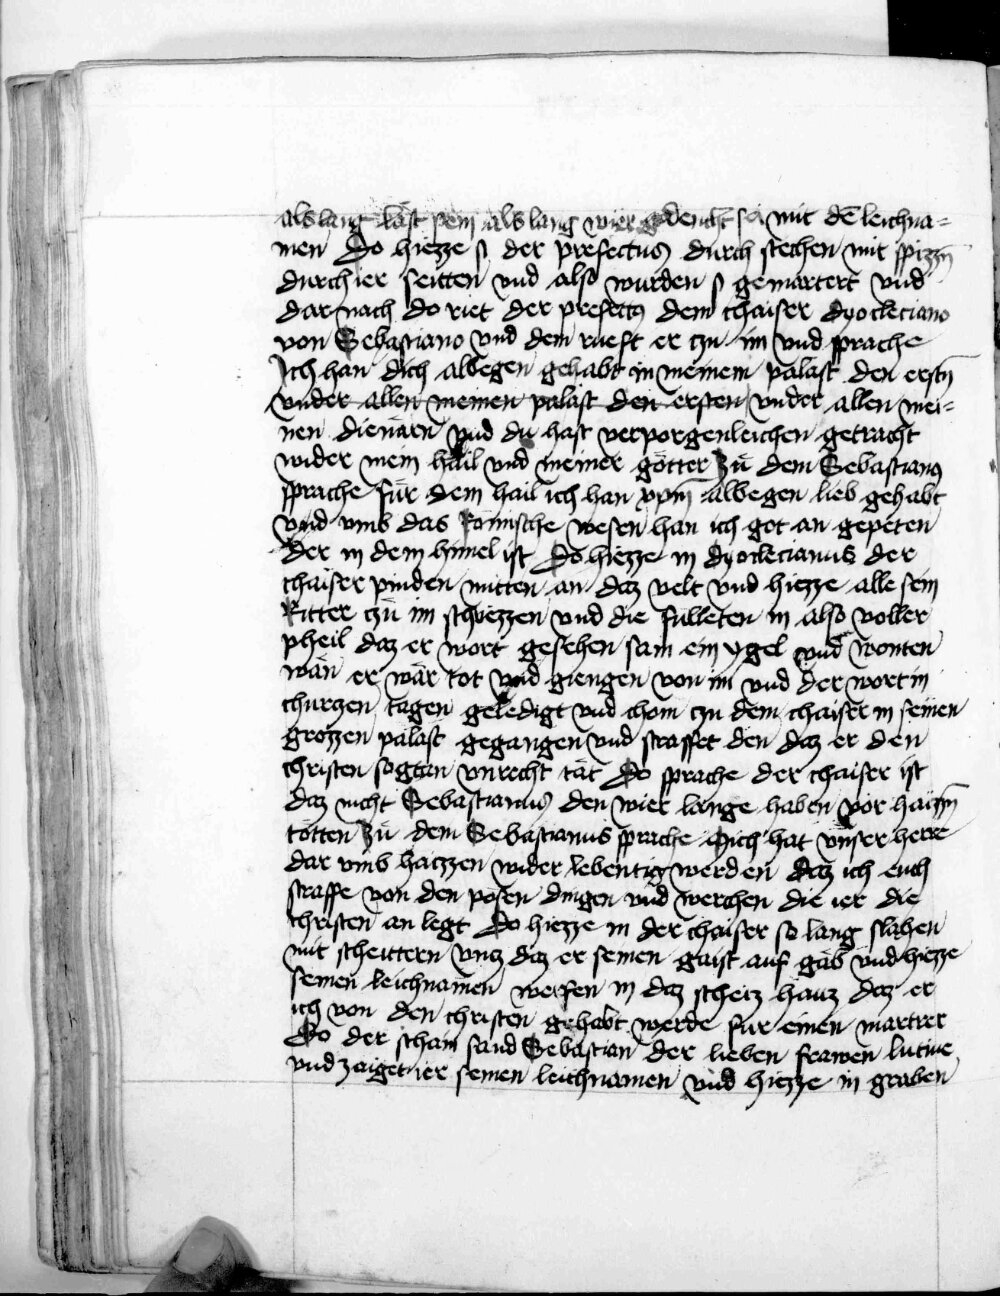 als lang last sein als lang wier gedencht sei mit dē leichna=
men Do hiezze s der prefectus durch stechen mit spizzn̄
durch ier seitten vnd also wurden s gemartert vnd
dar nach do riet der prefectus dem chaiser dyocleciano
von Sebastiano vnd dem rueft er czu im vnd sprache
Ich han dich albegen gehabt in meinem palast den erstn̄
vnder allen meinen palast den ersten vnder allen mei=
nen dienärn vnd du hast verporgenleichen getracht
wider mein häil vnd meiner götter Zü dem Sebastianus
sprache für dein hail ich han xpm̄ albegen lieb gehabt
vnd vmb das Römische wesen han ich got an gepeten
der in dem himel ist Do hiezze in dyoclecianus der
chaiser pinden mitten an daz velt vnd hiezze alle sein
Ritter czü im schiezzen vnd die fülleten in also voller
pheil daz er wort gesehen sam ein ygel vnd wonten
wan er wär tot vnd giengen von im vnd der wort in
churczen tagen geledigt vnd chom czu dem chaiser in seinen
grozzen palast gegangen vnd straffet den daz er den
christen sogtan vnrecht tät Do sprache der chaiser ist
daz nicht Sebastianus den wier lange haben vor haizzn̄
tötten Zü dem Sebastianus sprache Mich hat vnser herre
dar vmb haizzen wider lebentig werden daz ich euch
straffe von den posen dingen vnd werchen die ier die
christen an legt Do hiezze in der chaiser so lang slahen
mit scheittern vncz daz er seinen gaist auf gab vnd hiezze
seinen leichnamen werfen in daz scheiz hauz daz er
icht von den christen gehabt werde für einen martrer
Do der schain sand Sebastian der lieben frawen lucine
vnd zaiget ier seinen leichnamen vnd hiezze in graben